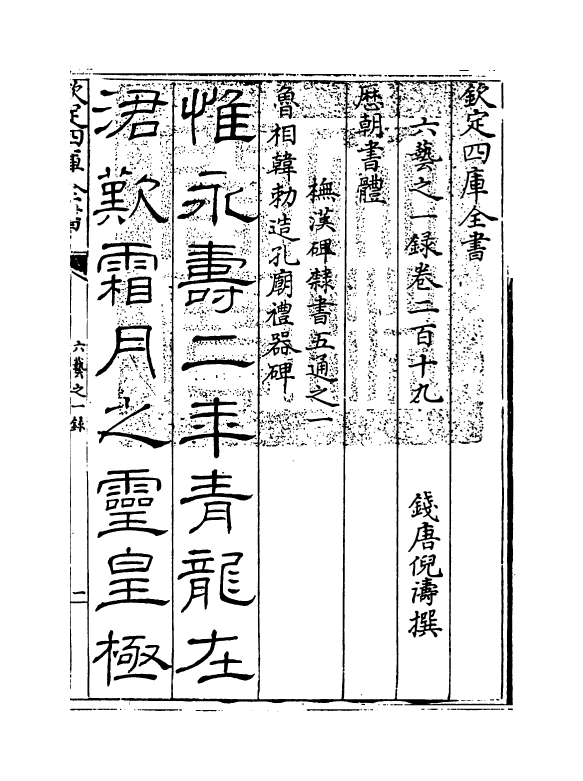 欽定四庫全書
六藝之一録卷二百十九
錢唐倪濤撰
歴朝書體
橅漢碑隸書五通之一
魯相韓勑造孔廟禮器碑
惟永壽二年青龍在
涒歎霜月之靈皇極
欽定四庫全書
六藝之一録